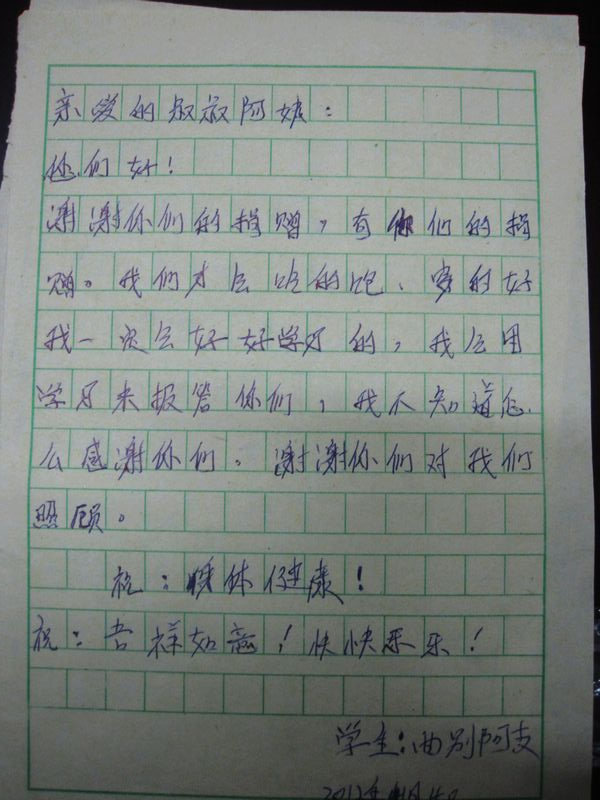 亲爱的叔叔阿姨：
您们好！
谢谢你们的捐赠，有你们的捐
赠。我们才会吃的饱、穿的好
我一定会好好学习的，我会用
学习来报答你们，我不知道怎
么感谢你们。谢谢你们对我们
照顾。
祝：身体健康！
祝：吉祥如意！快快乐乐！
学生：曲别阿支